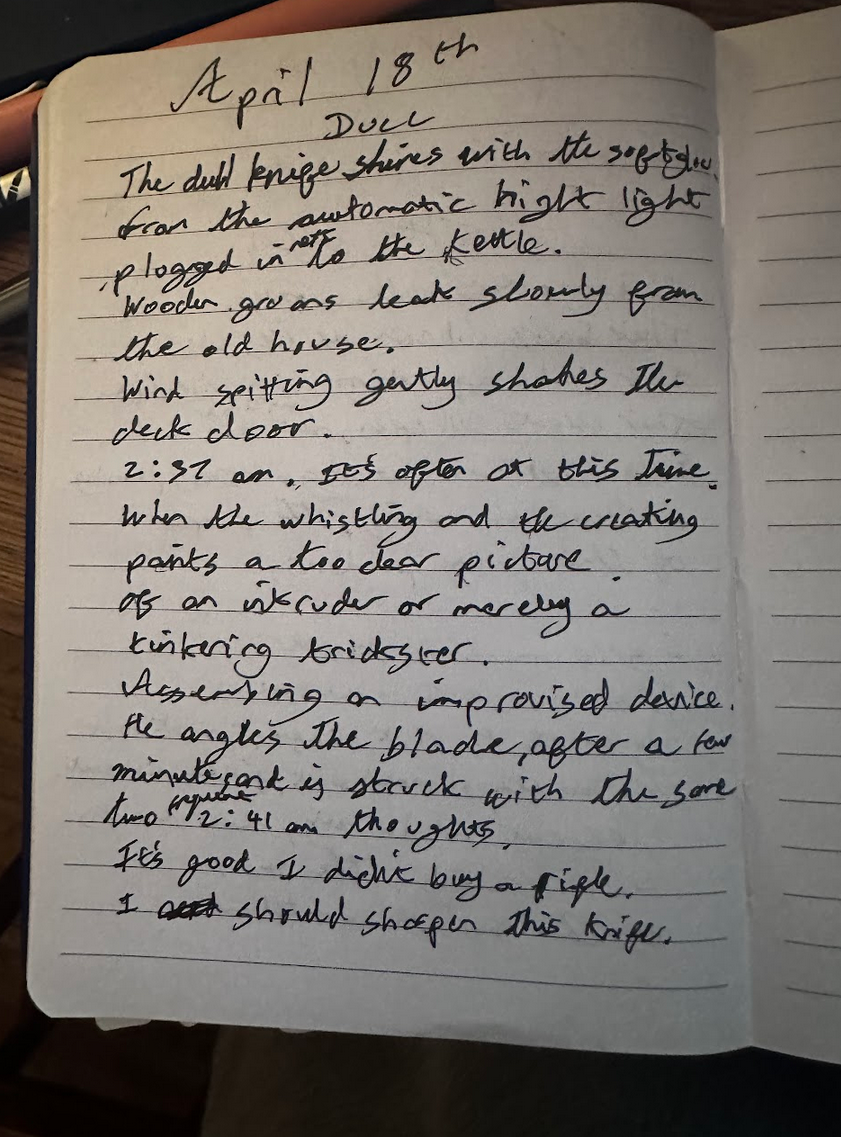 April 18th
Dull
The dull knife shines with the soft glow
from the automatic night light
plugged in next to the kettle.
Wooden groans leak slowly from
the old house.
Wind spitting gently shakes the
deck door.
2:37 am. It's often at this time.
When the whistling and the creaking
paints a too clear picture
of an intruder or merely a
tinkering trickster.
Assembling an improvised device.
He angles the blade, after a few
minutes and is struck with the same
two frequent 2:41 am thoughts.
It's good I didn't buy a rifle.
I should sharpen this knife.